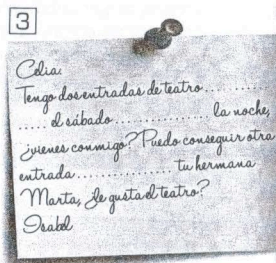 3
Celia:
Tengo dos entradas de teatro ............
..... el sábado ................ la noche,
¿vienes conmigo? Puedo conseguir otra
entrada ................ tu hermana
Marta, ¿le gusta el teatro?
Isabel